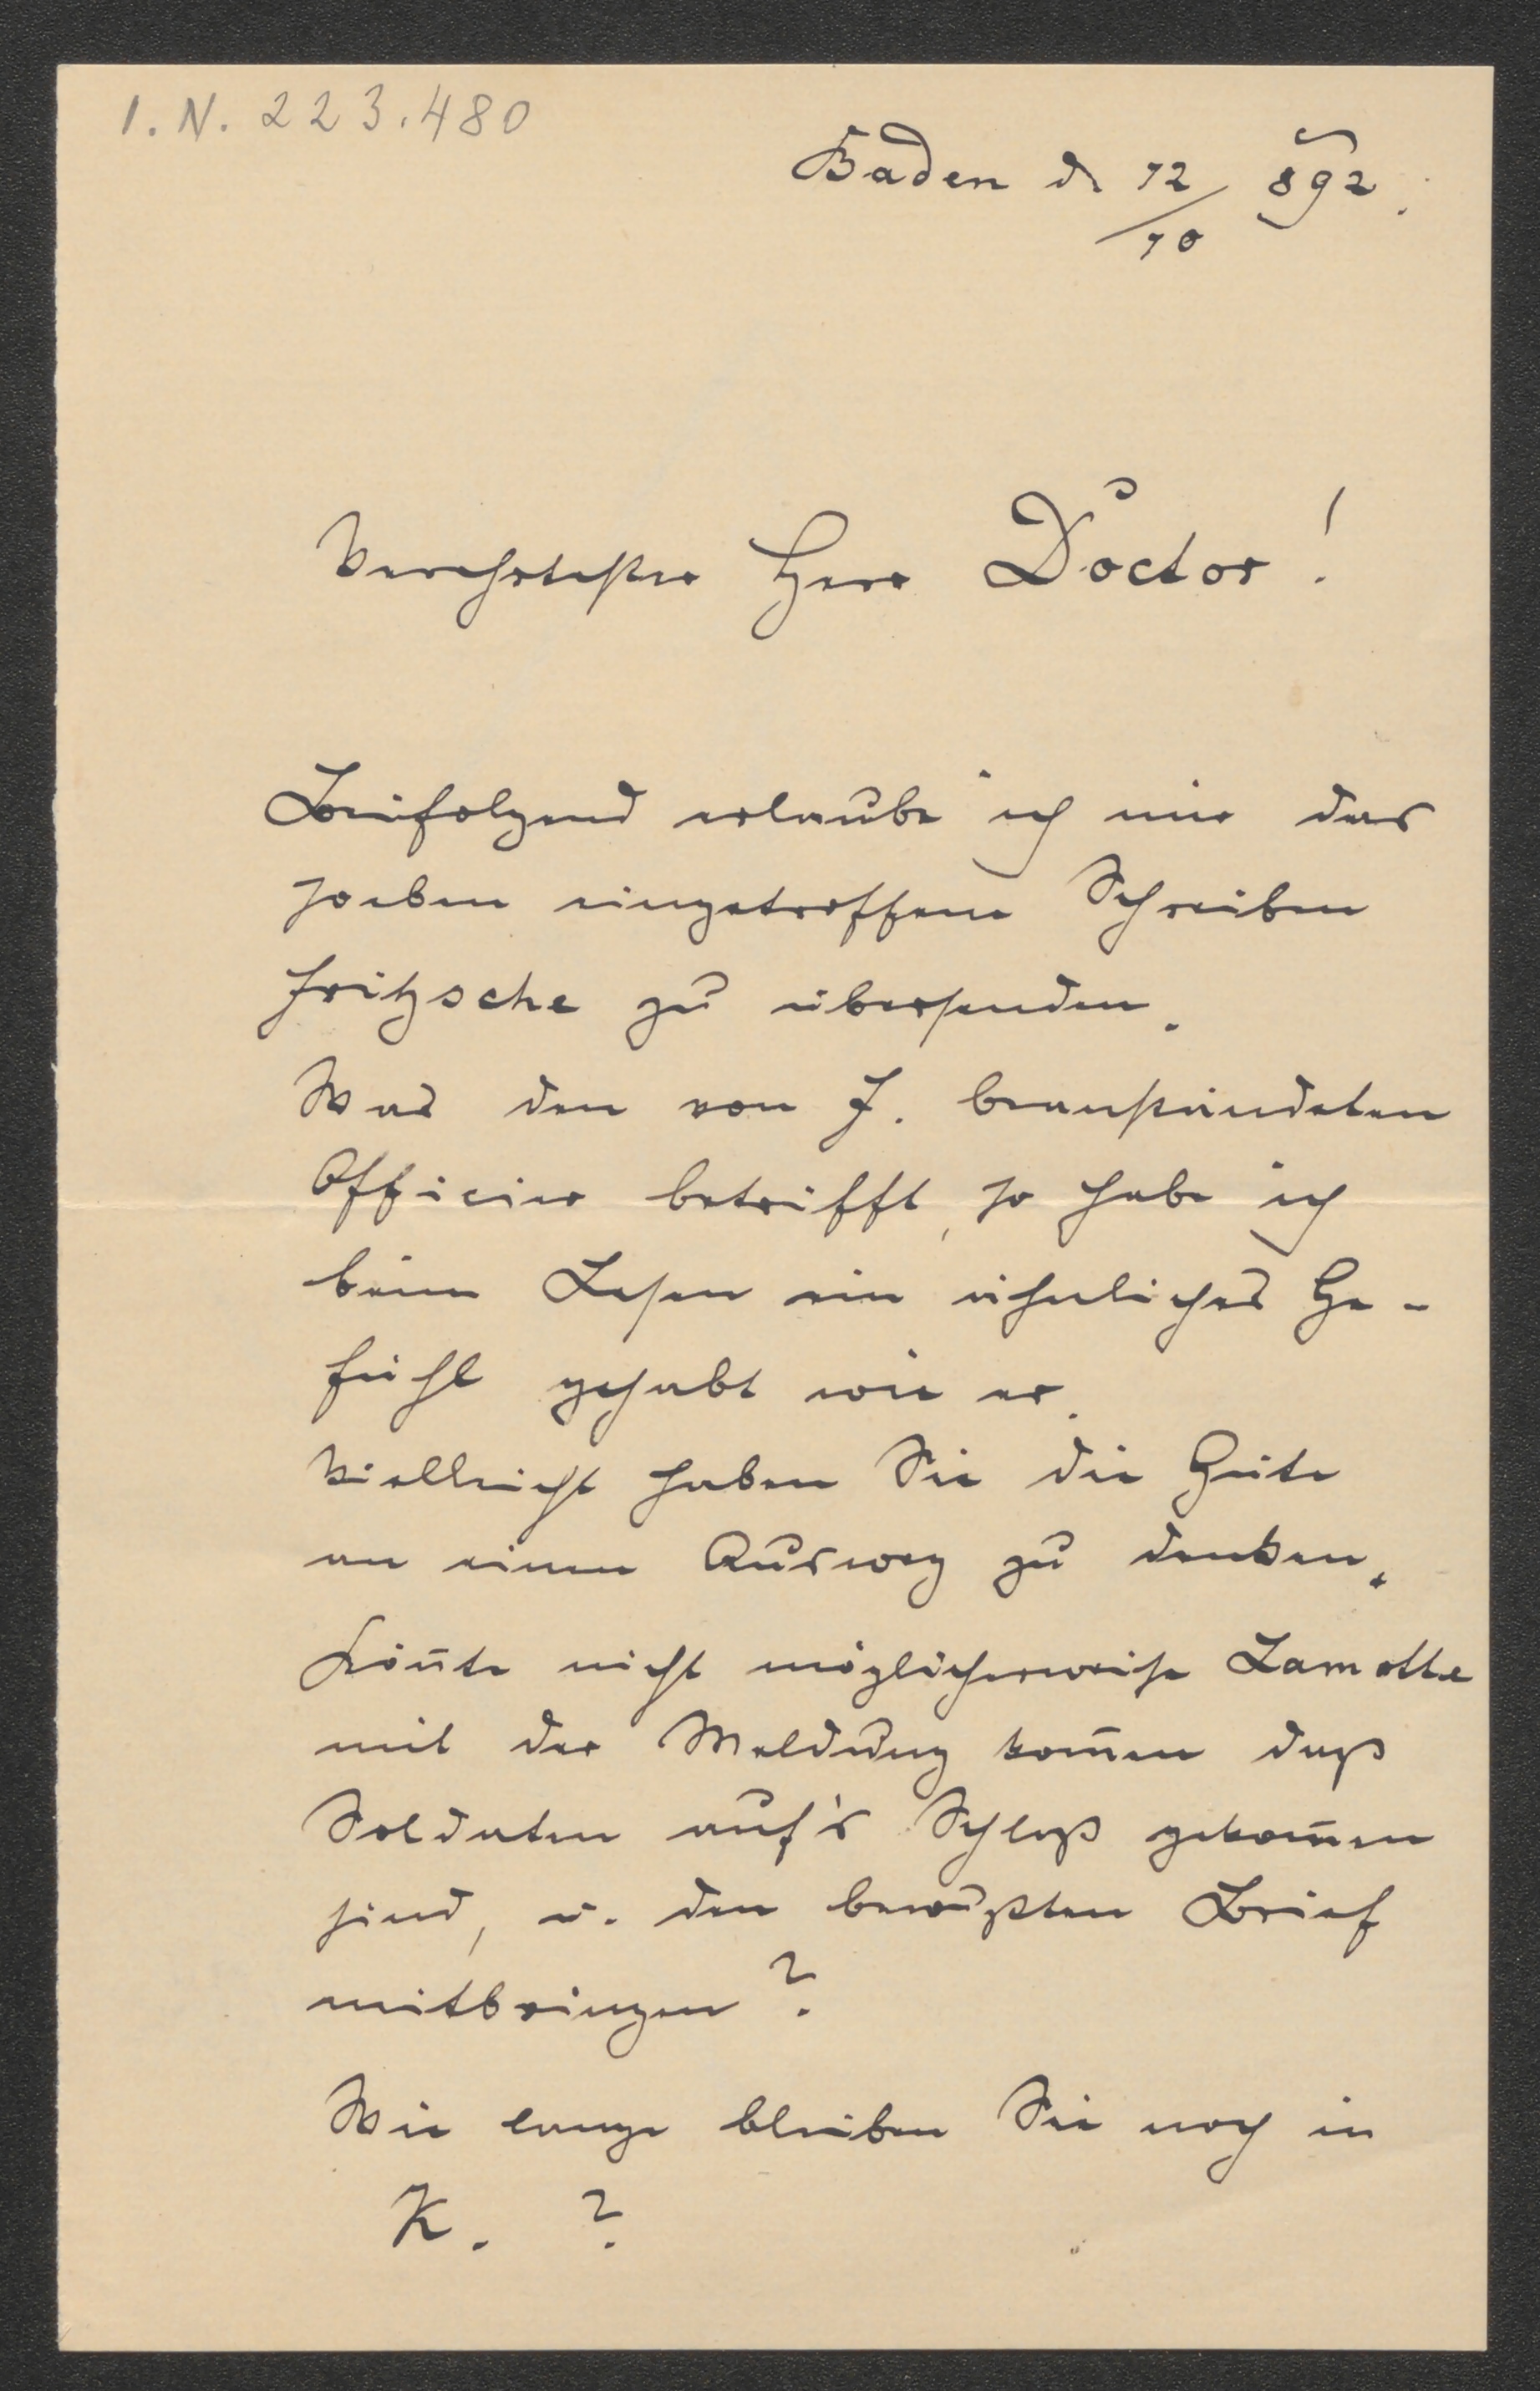 I.N. 223.480
Baden d. 12/10 892.
Verehrtester Herr Doctor!
Beifolgend erlaube ich mir das
soeben eingetroffene Schreiben
Fritzsche zu übersenden.
Was den von F. beanständeten
Officier betrifft, so habe ich
beim Lesen ein ähnliches Ge-
fühl gehabt wie er.
Vielleicht haben Sie die Güte
an einen Ausweg zu denken.
Kön̄te nicht möglicherweise Lamotte
mit der Meldung kom̄en daß
Soldaten auf's Schloß gekom̄en
sind, u. den bewußten Brief
mitbringen?
Wie lange bleiben Sie noch in
K. ?